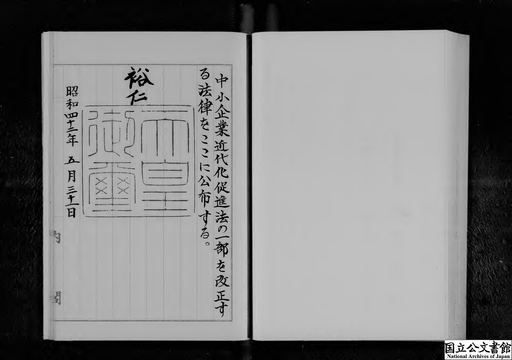 中小企業近代化促進法の一部を改正す
る法律をここに公布する。
裕仁
天皇
御璽
昭和四十二年 五月三十一日
国立公文書館
National Archives of Japan